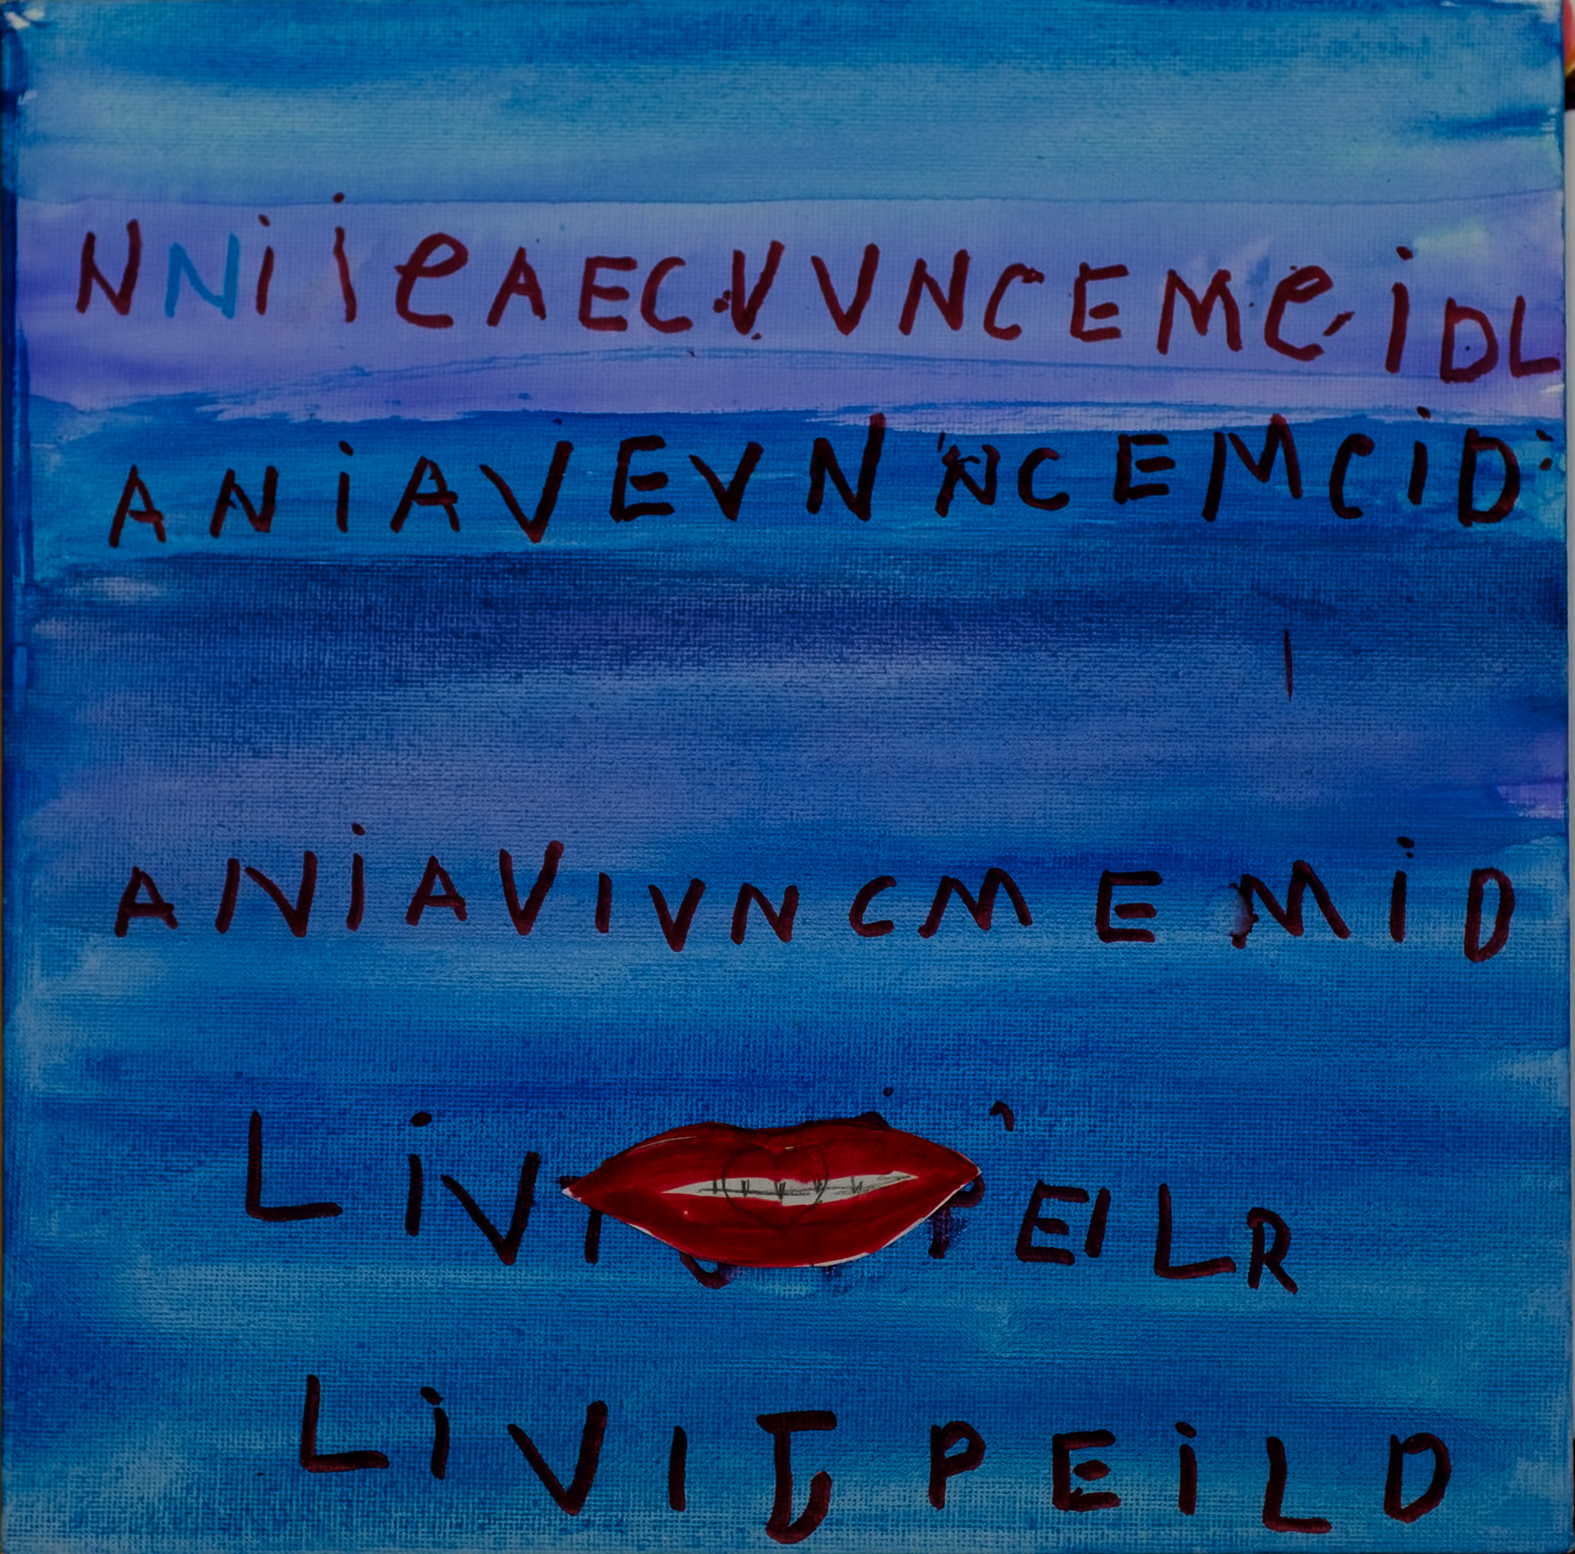 NNiieAECVVNCEMeiDL
ANiAVEVNNCEMCiD
ANiAVIVNCMEMiD
LiVI PEILR
LiVITPEiLD